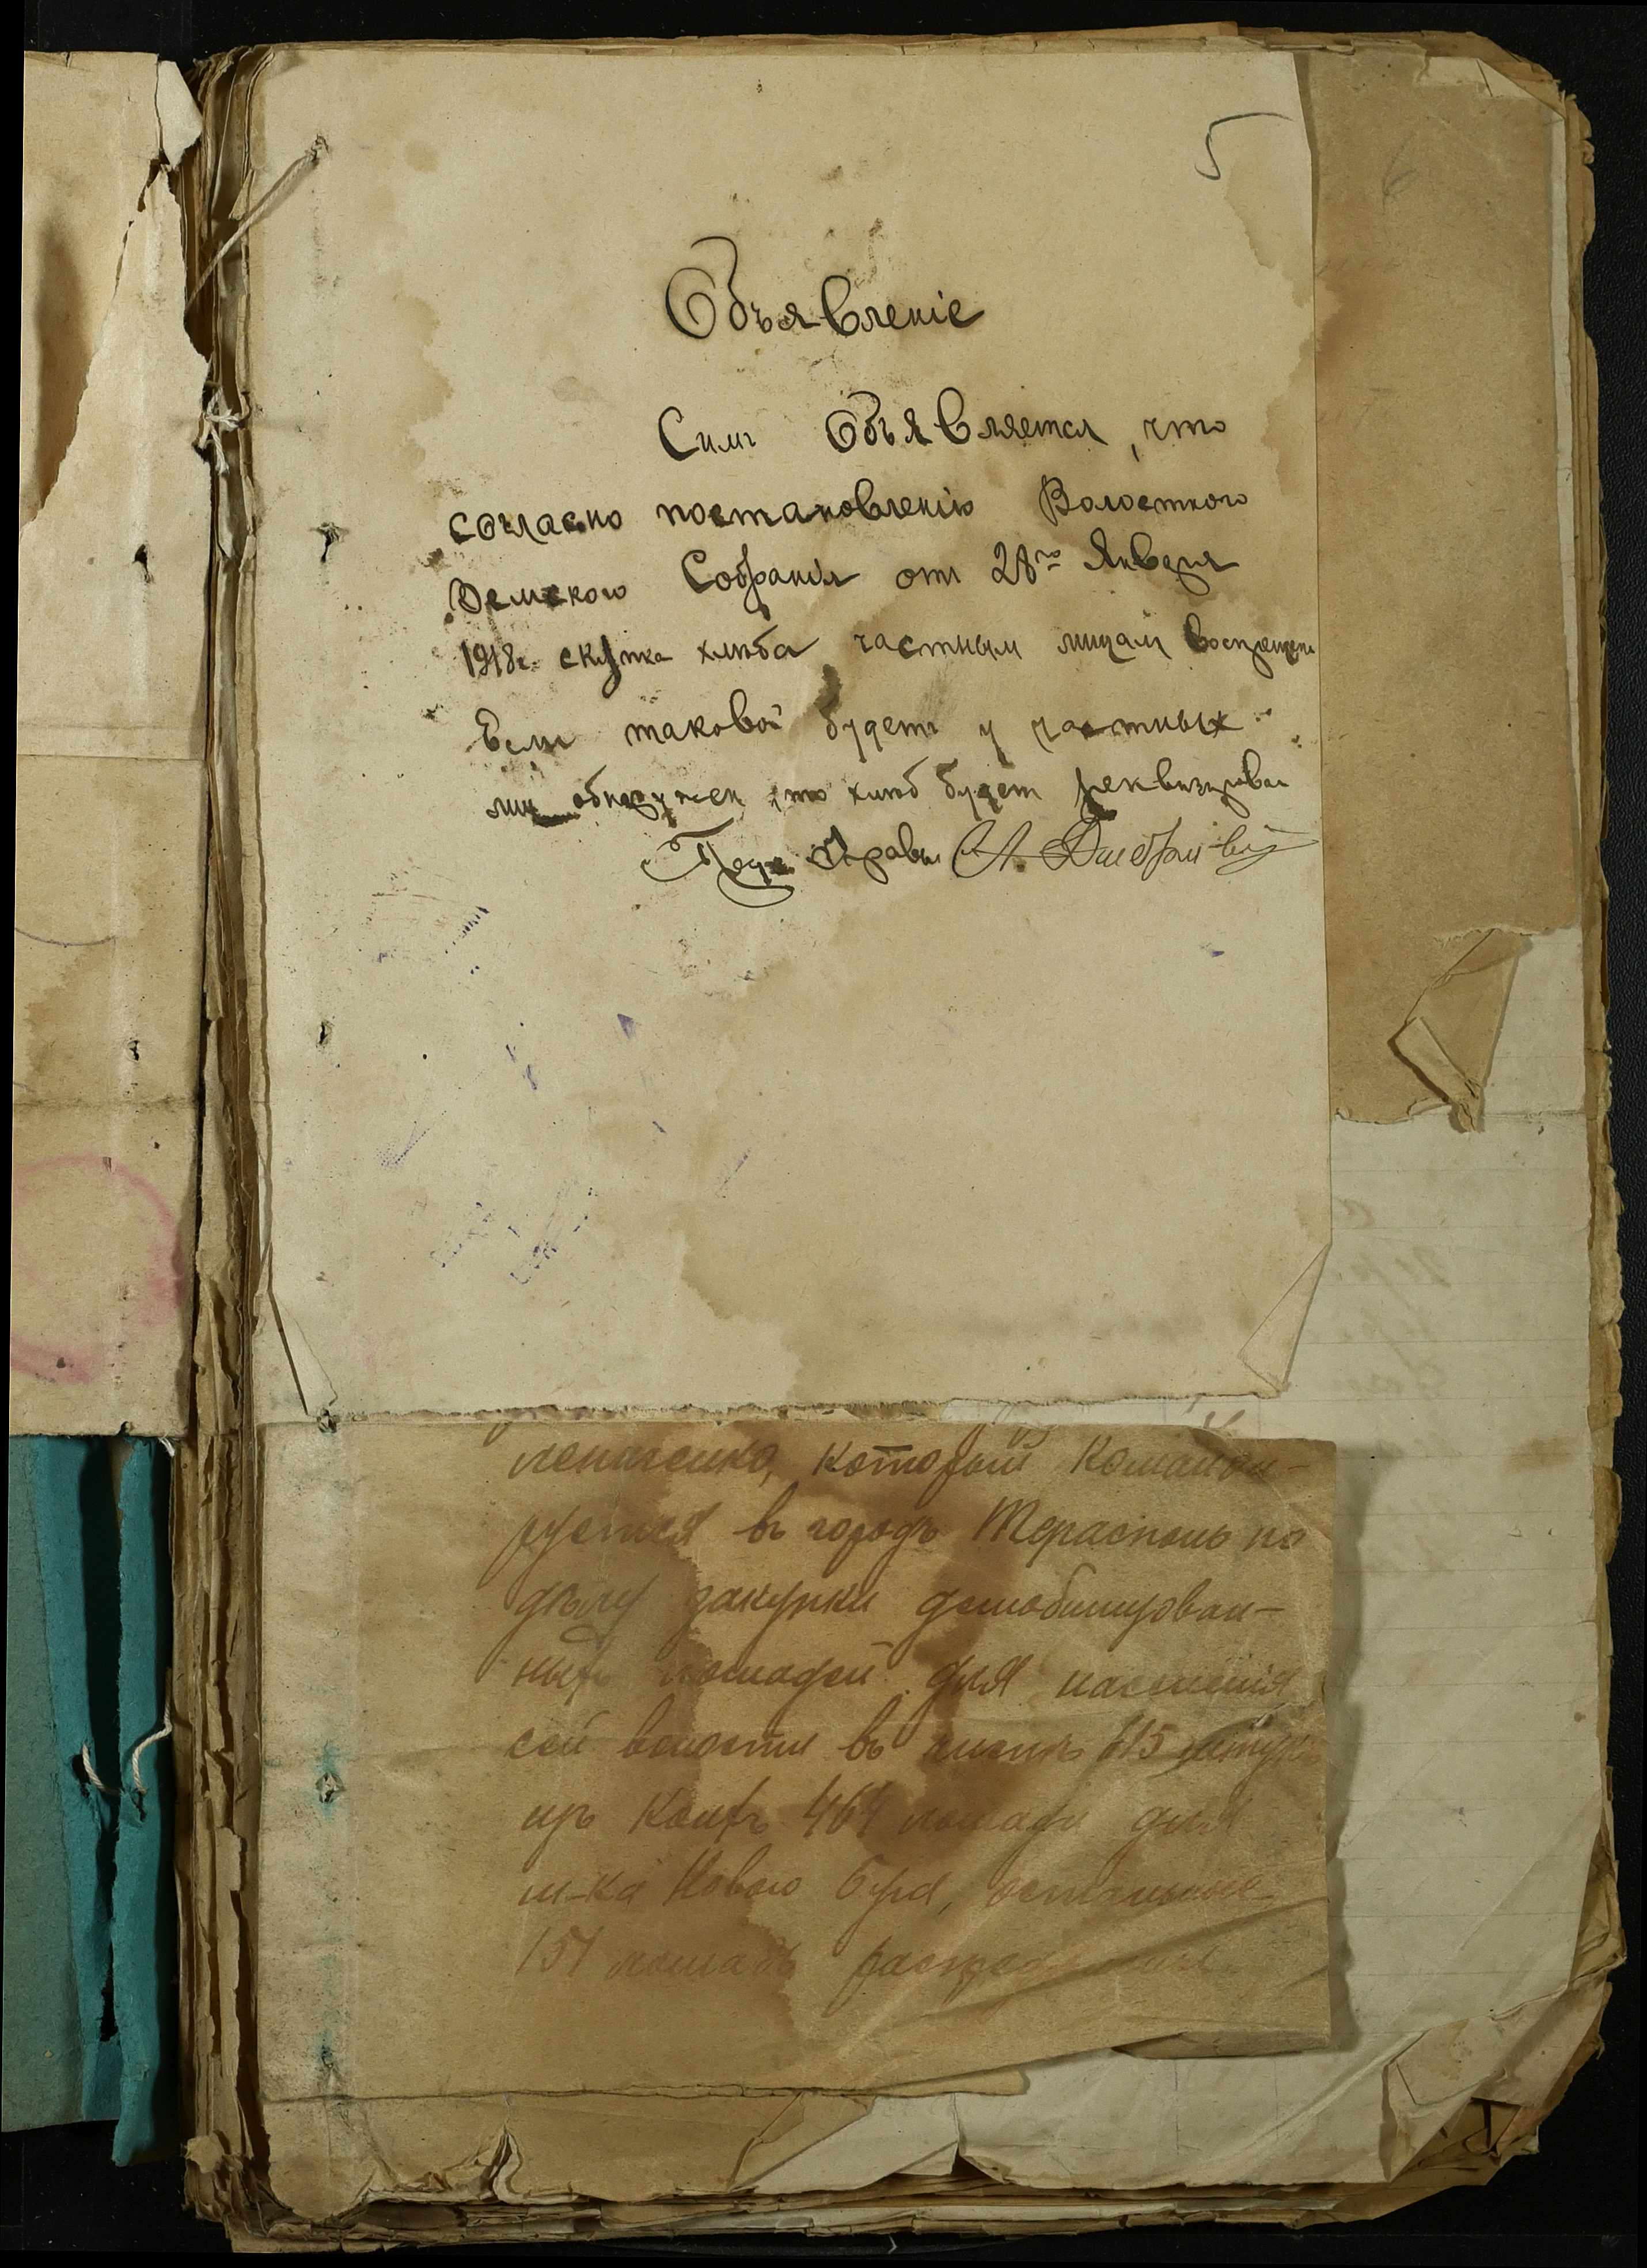 5
Объявленіе
Симъ Объявляется, что
согласно постановленію Волостного
Земского Собранія отъ 28го Января
1918г. скупка хлѣба частным лицам воспрещена
Если таковой будетъ у частных
лиц обнаружен, то хлѣб будет реквизирован
Пред. Управы
6
который командi-
руется въ городъ Терасполь по
дѣлу закупки демобилизован-
ныхъ лошадей для населенія
сей волости въ числѣ 615 штукъ
изъ коихъ 464 лошади для
м-ка Новаго Буга, остальные
151 лошадь